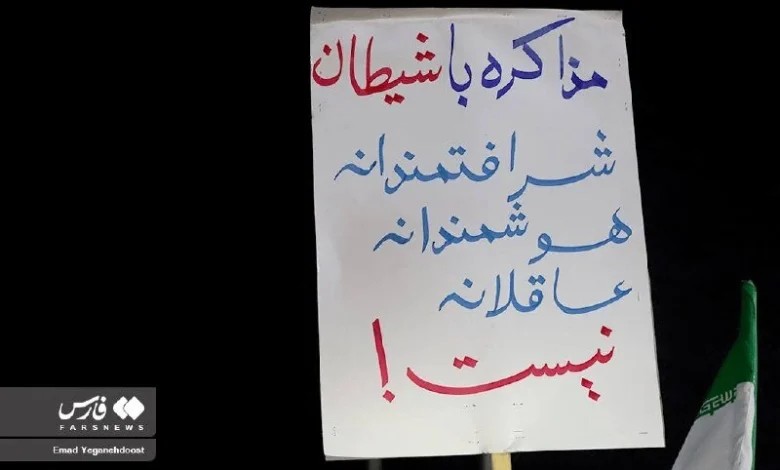 مذاکره با شیطان
شرافتمندانه
هوشمندانه
عاقلانه
نیست!
فارس
FARSNEWS
Emad Yeganehdoost